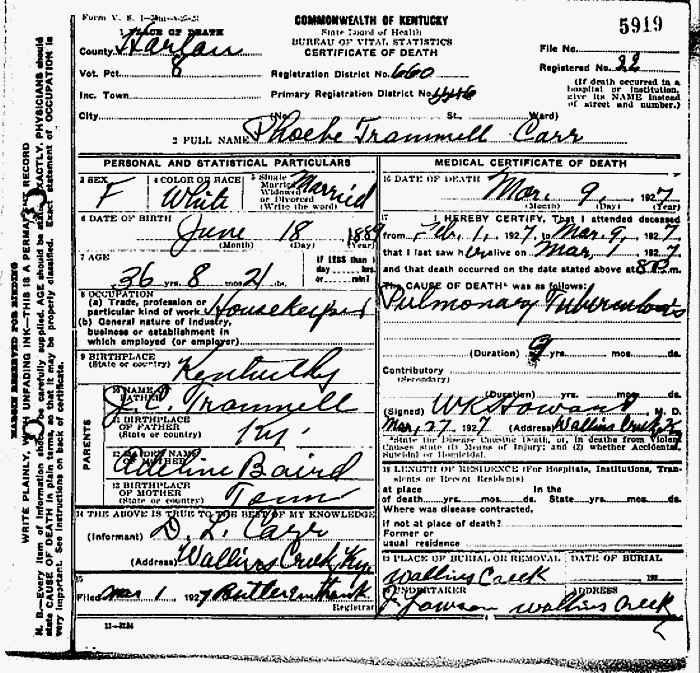 Form V. S. 1
COMMONWEALTH OF KENTUCKY
5919
State Board of Health
BUREAU OF VITAL STATISTICS
CERTIFICATE OF DEATH
1 PLACE OF DEATH
County Harlan
File No.
Vot. Pct 8
Registration District No. 660
Registered No. 22
Inc. Town
Primary Registration District No.
(If death occurred in a hospital or institution, give its NAME instead of street and number.)
City (No. St. Ward)
2 FULL NAME Phoebe Trammell Carr
PERSONAL AND STATISTICAL PARTICULARS
3 SEX F
4 COLOR OR RACE White
5 Single Married Widowed or Divorced (Write the word) Married
6 DATE OF BIRTH June 18 188
(Month) (Day) (Year)
7 AGE 36 yrs. 8 mos. 21 ds.
If LESS than 1 day hrs. or min?
8 OCCUPATION
(a) Trade, profession or particular kind of work Housekeeper
(b) General nature of industry, business or establishment in which employed (or employer)
9 BIRTHPLACE (State or country) Kentucky
PARENTS
10 NAME OF FATHER J. C. Trammell
11 BIRTHPLACE OF FATHER (State or country) Ky.
12 MAIDEN NAME OF MOTHER Baird
13 BIRTHPLACE OF MOTHER (State or country) Tenn
14 THE ABOVE IS TRUE TO THE BEST OF MY KNOWLEDGE
(Informant) D. L. Carr
(Address) Wallins Creek, Ky.
15
Filed Mar 1 1927
Registrar
11-3184
MEDICAL CERTIFICATE OF DEATH
16 DATE OF DEATH Mar. 9, 1927
(Month) (Day) (Year)
17 I HEREBY CERTIFY, That I attended deceased
from Feb. 1, 1927, to Mar. 9, 1927
that I last saw her alive on Mar, 1 1927
and that death occurred on the date stated above at 8 P.m.
The CAUSE OF DEATH* was as follows:
Pulmonary Tuberculosis
(Duration) yrs. mos. ds.
Contributory (Secondary)
(Duration) yrs. mos. ds.
(Signed) W K Howard M. D.
Mar, 27 1927 (Address) Wallins Creek, Ky
*State the Disease Causing Death, or, in deaths from Violent Causes state (1) Means of Injury; and (2) whether Accidental, Suicidal or Homicidal.
18 LENGTH OF RESIDENCE (For Hospitals, Institutions, Transients or Recent Residents)
at place of death yrs. mos. ds. In the State yrs. mos. ds.
Where was disease contracted,
if not at place of death?
Former or usual residence
19 PLACE OF BURIAL OR REMOVAL DATE OF BURIAL
Wallins Creek 192
20 UNDERTAKER ADDRESS
J Lawson Wallins Creek
MARGIN RESERVED FOR BINDING
WRITE PLAINLY, WITH UNFADING INK—THIS IS A PERMANENT RECORD
N. B.—Every item of information should be carefully supplied. AGE should be stated EXACTLY. PHYSICIANS should state CAUSE OF DEATH in plain terms, so that it may be properly classified. Exact statement of OCCUPATION is very important. See instructions on back of certificate.